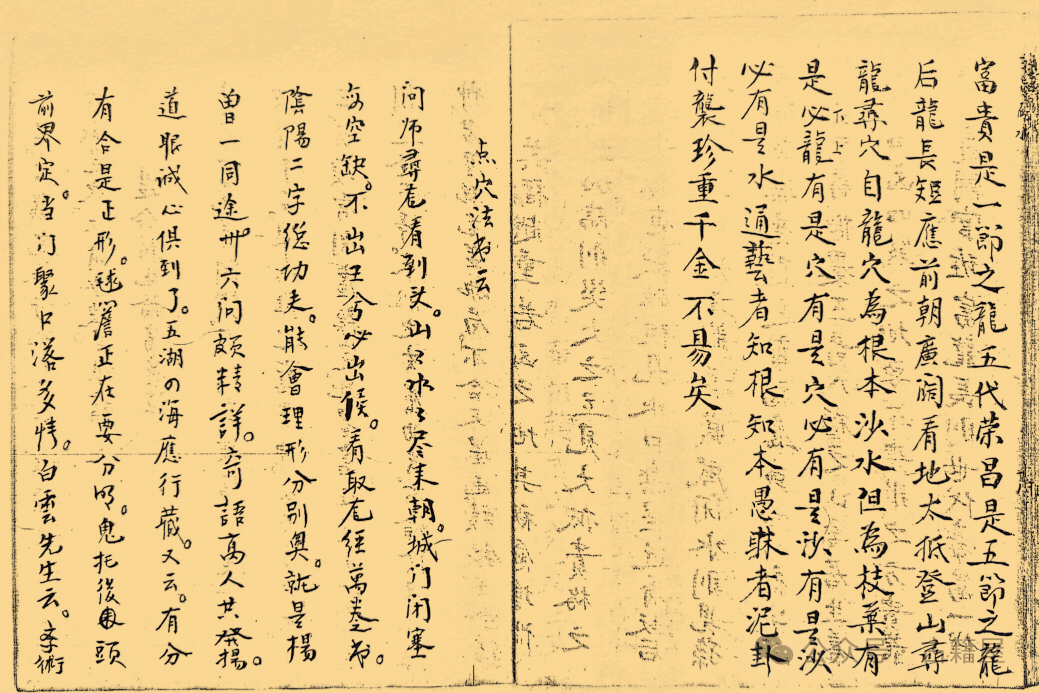 富貴是一節之龍五代荣昌是五節之龍
后龍長短應前朝廣闊看地太低登山尋
龍尋穴自龍穴為根本沙水但為枝葉有
是必龍有是穴有是穴必有是沙有是沙
必有是水通藝者知根知本愚昧者泥卦
付襲珍重千金不易矣
点穴法
云
问师尋龙看到头。山々水々尽来朝。城门闭塞
空缺。不出王兮必出侯。看取龙经萬卷
陰陽二字総功夫。能會理形分别奥。就是楊
曽一同途。卅六问頗精詳。奇語高人共發揚。
道眼诚心俱到了。五湖の海應行藏。又云。有分
有合是正形。毬簷正在要分明。鬼托後
頭
前界定。当门聚口落多情。白雲先生云。
術